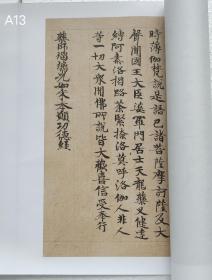 A13
時薄伽梵說是語已諸菩薩摩訶薩及大
聲聞國王大臣婆羅門居士天龍藥叉健達
縛阿素洛揭路荼緊捺洛莫呼洛伽人非人
等一切大眾聞佛所說皆大歡喜信受奉行
藥師瑠璃光如來本願功德經